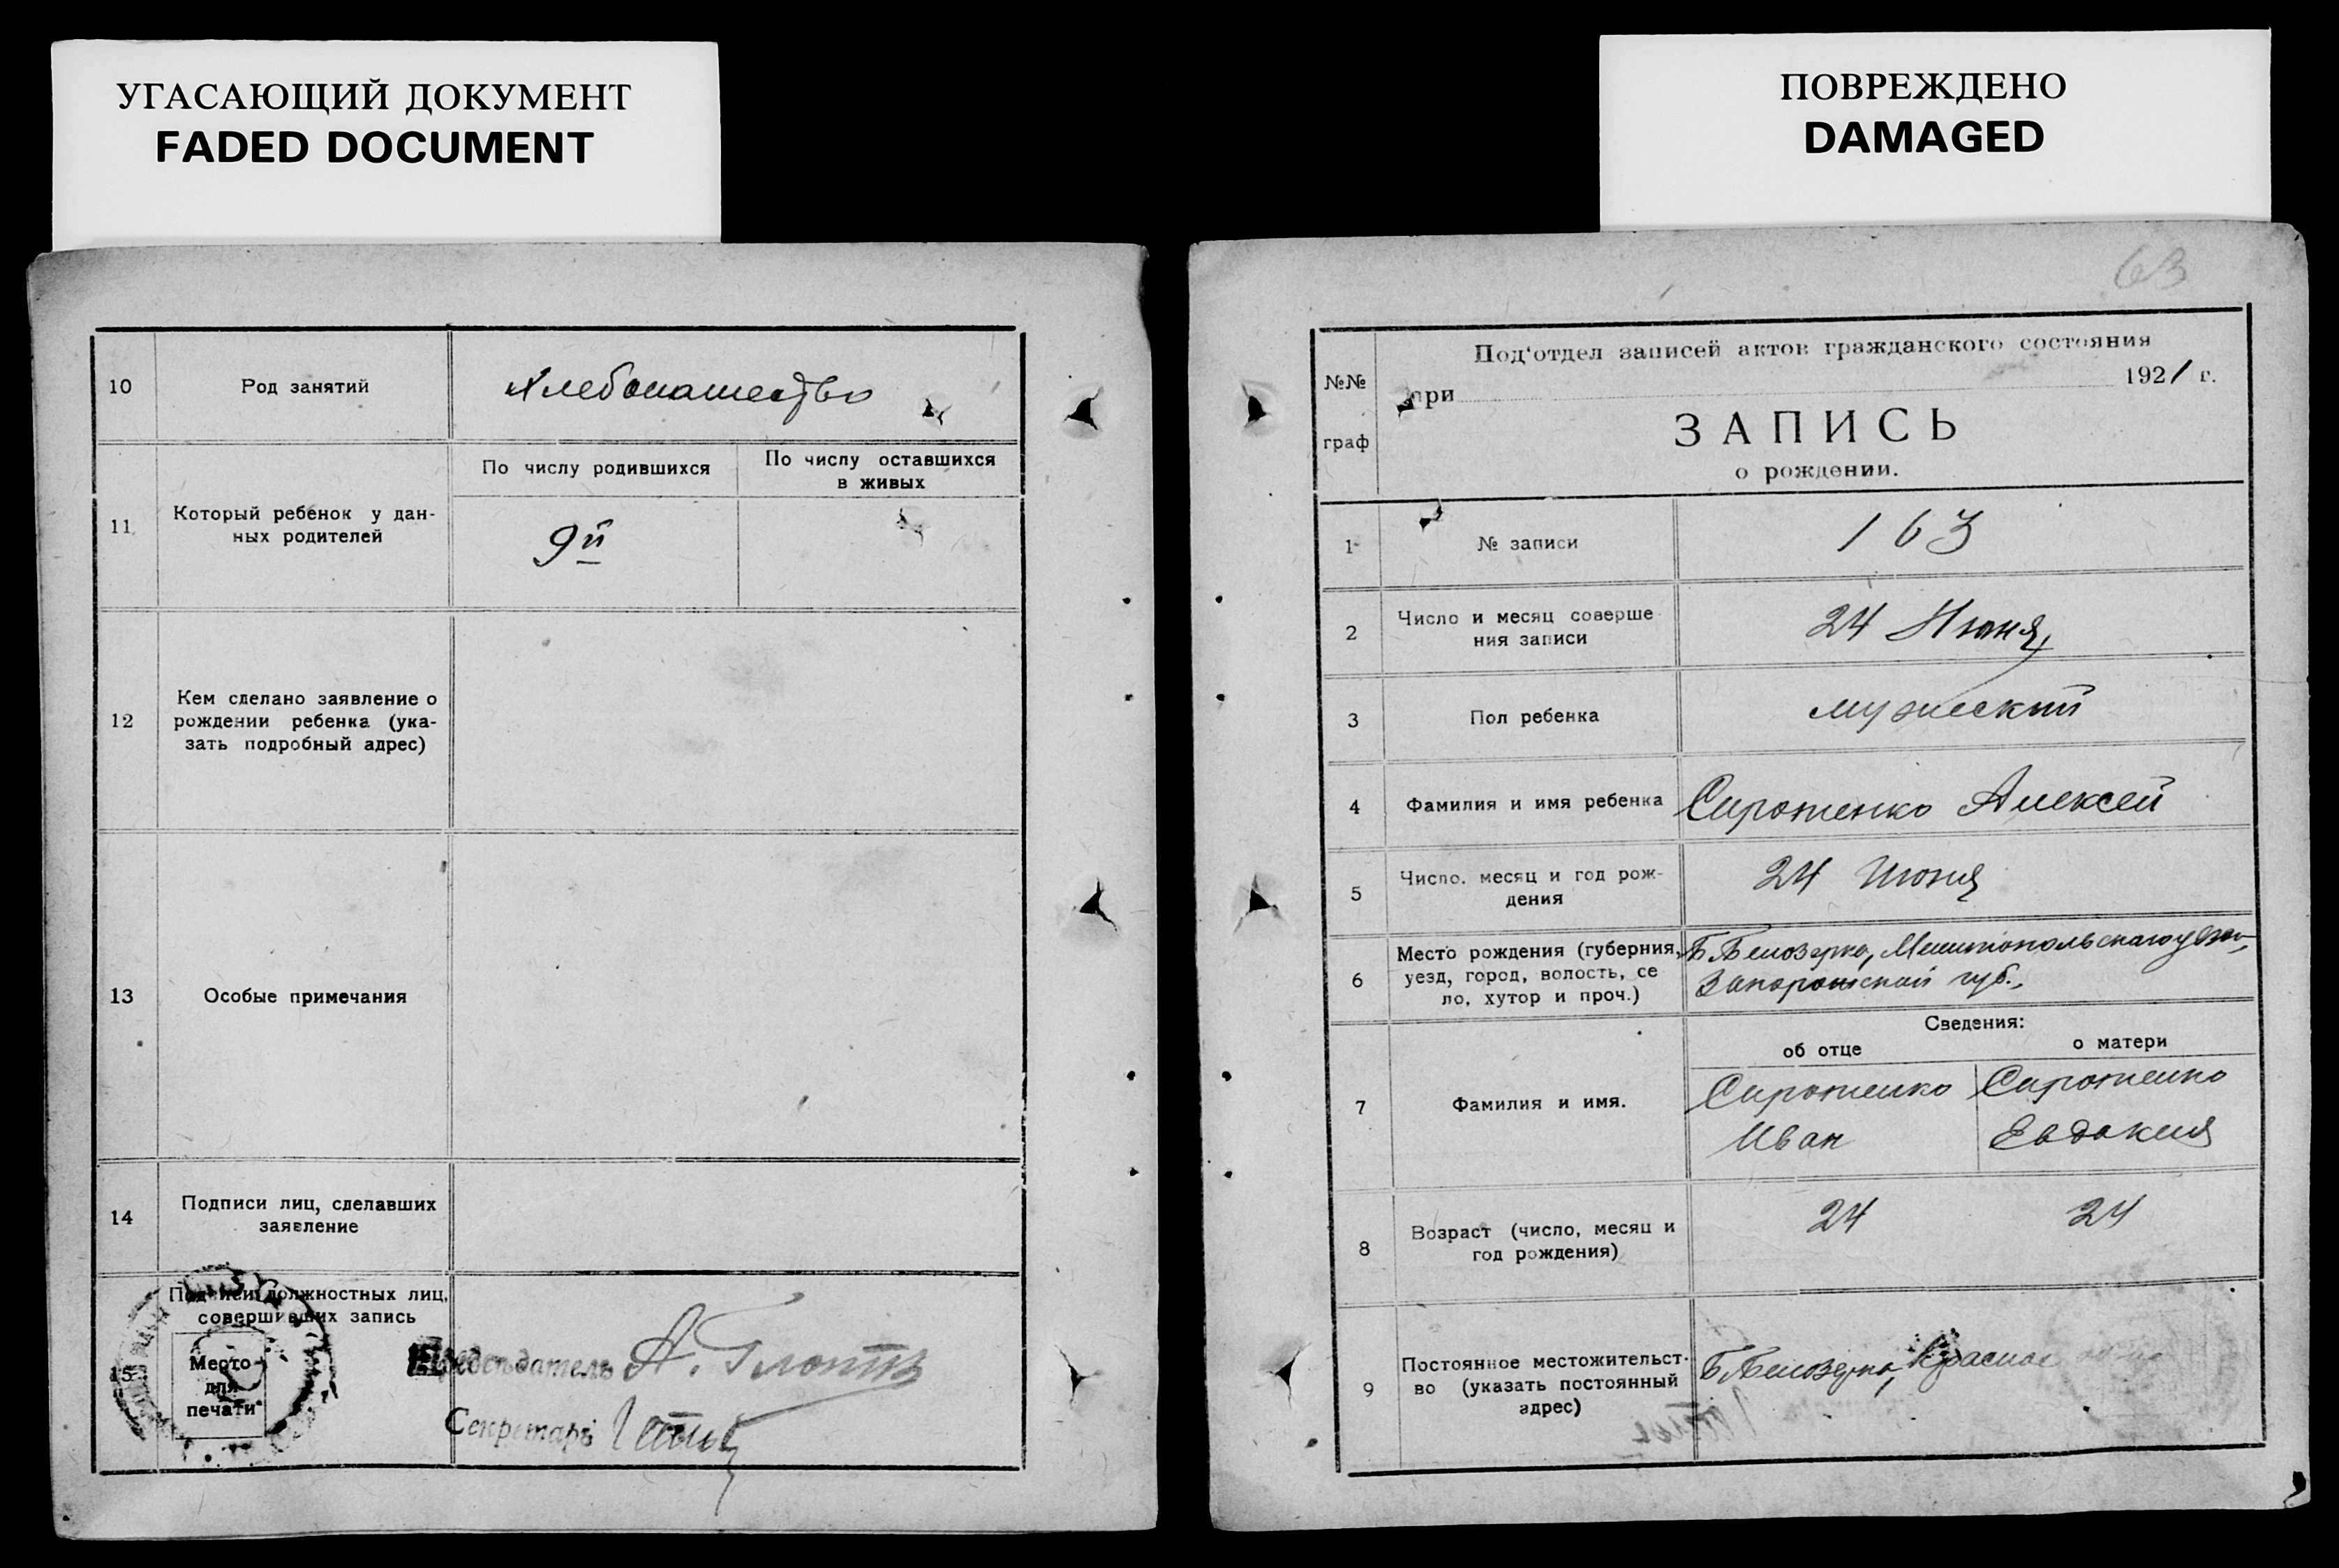 УГАСАЮЩИЙ ДОКУМЕНТ
FADED DOCUMENT
10 Род занятий Хлебопашество
11 Который ребенок у дан-
ных родителей
По числу родившихся
По числу оставшихся
в живых
9й
12 Кем сделано заявление о
рождении ребенка (ука-
зать подробный адрес)
13 Особые примечания
14 Подписи лиц, сделавших
заявление
15 Подписи должностных лиц,
совершивших запись
Место
для
печати
Председатель А.
Секретарь
ПОВРЕЖДЕНО
DAMAGED
63
№№
граф
Под'отдел записей актов гражданского состояния
при 1921 г.
ЗАПИСЬ
о рождении.
1 № записи 163
2 Число и месяц соверше
ния записи
24 Июня
3 Пол ребенка мужеский
4 Фамилия и имя ребенка Сиротенко Алексей
5 Число. месяц и год рож-
дения
24 Июня
6 Место рождения (губерния,
уезд, город, волость, се
ло, хутор и проч.)
Б Белозерка, Мелитопольскаго уезда,
Запорожской губ.,
Сведения:
об отце о матери
7 Фамилия и имя.
Сиротенко Сиротенко
Иван Евдокия
8 Возраст (число, месяц и
год рождения)
24 24
9 Постоянное местожительст-
во (указать постоянный
адрес)
Б Белозерка, Красное